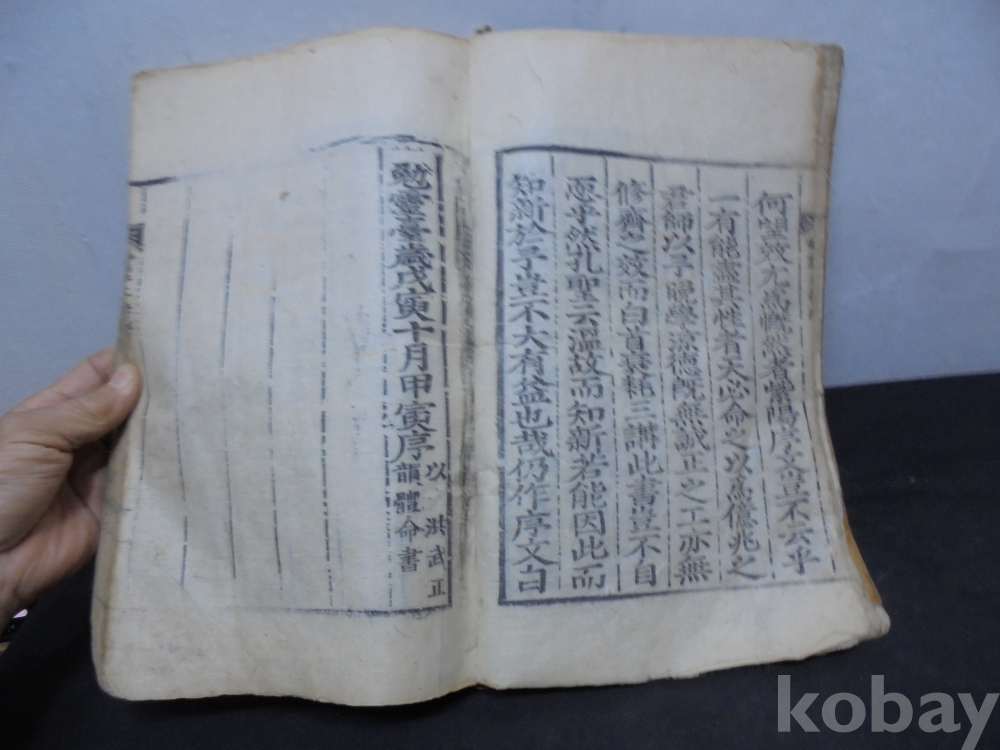 何望焉尤爲慨然者紫陽序文豈不云乎
一有能盡其性者天必命之以爲億兆之
君師以予晩學涼德旣無誠正之工亦無
修齊之效而白首衰耗三講此書豈不自
恧乎然孔聖云溫故而知新若能因此而
知新於予豈不大有益也哉仍作序文自
勉靈臺歲戊寅十月甲寅序
以 洪武正
韻體命書
kobay